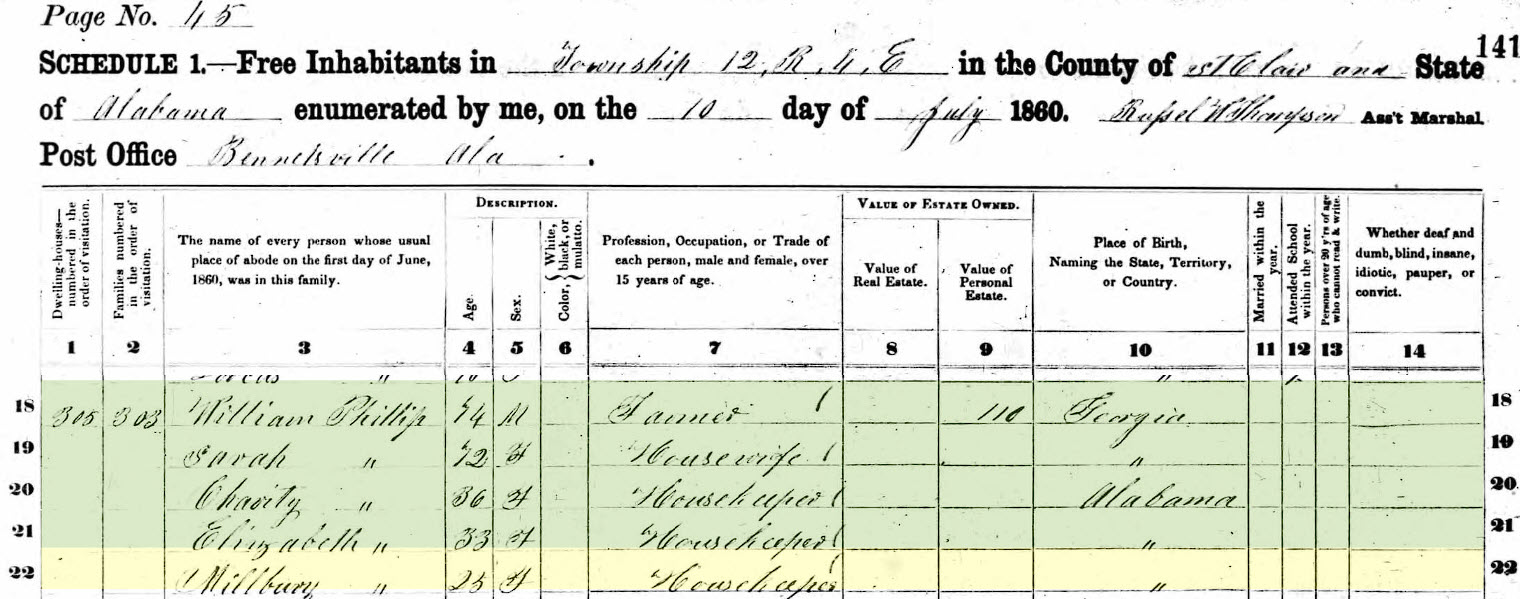 Page No. 45
141
SCHEDULE 1.—Free Inhabitants in Township 12, R 4, E in the County of St Clair and State
of Alabama enumerated by me, on the 10 day of July 1860. Russel W Thompson Ass't Marshal.
Post Office Bennetsville Ala.
Dwelling-houses—numbered in the order of visitation.
Families numbered in the order of visitation.
The name of every person whose usual
place of abode on the first day of June,
1860, was in this family.
DESCRIPTION.
Age.
Sex.
Color, { White, black, or mulatto.
Profession, Occupation, or Trade of
each person, male and female, over
15 years of age.
VALUE OF ESTATE OWNED.
Value of
Real Estate.
Value of
Personal
Estate.
Place of Birth,
Naming the State, Territory,
or Country.
Married within the year.
Attended School within the year.
Persons over 20 y'rs of age who cannot read & write.
Whether deaf and
dumb, blind, insane,
idiotic, pauper, or
convict.
1 2 3 4 5 6 7 8 9 10 11 12 13 14
18 305 303 William Phillip 74 M Farmer 110 Georgia 18
19 Sarah " 72 F Housewife " 19
20 Charity " 36 F Housekeeper Alabama 20
21 Elizabeth " 33 F Housekeeper " 21
22 Millbury " 25 F Housekeeper " 22